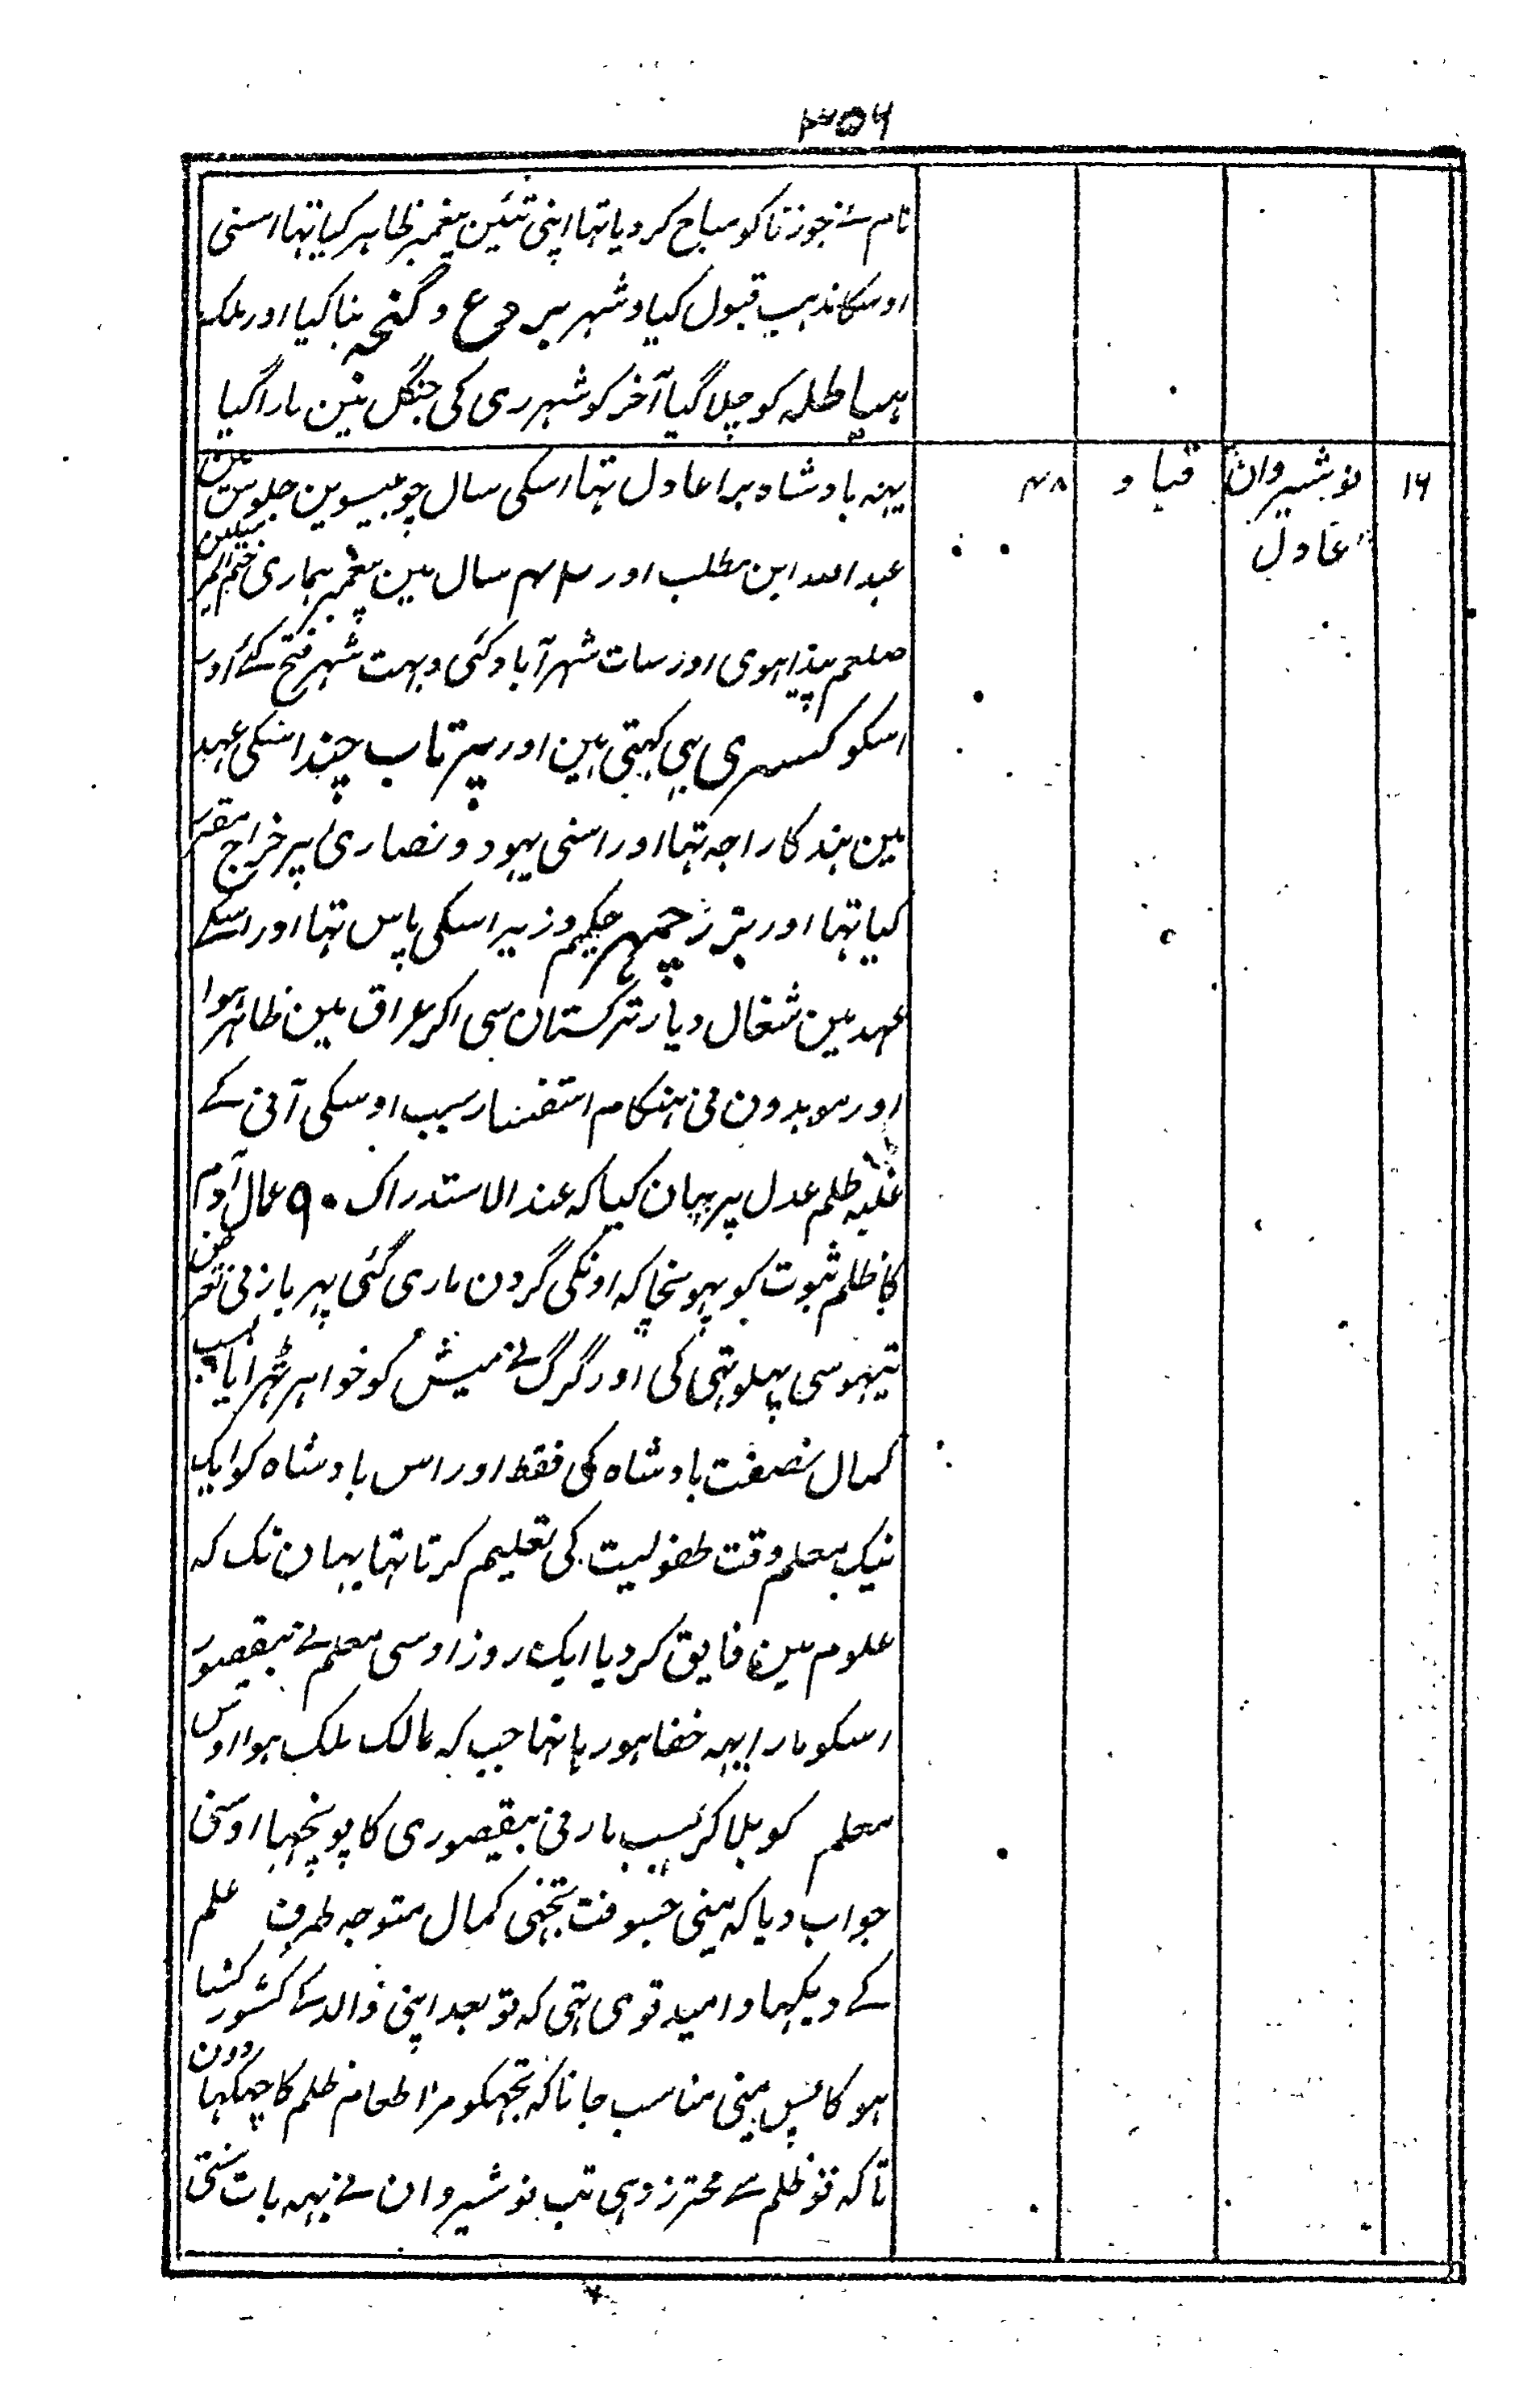 ۳۵۶
نام نے جو زنا کو مباح کر دیا تہا اپنی تئین پیغمبر ظاہر کیا تہا اسنی
اوسکا مذہب قبول کیا و شہر بردع و گنجہ بنا کیا اور ملک
ہیاطلہ کو چلا گیا آخر کو شہر ری کی جنگل مین مارا گیا
۱۶ نوشیروان عادل قباد ۴۸
یہہ بادشاہ بڑا عادل تہا اسکی سال چوبیسوین جلوس مین
عبد اللہ ابن مطلب اور ۴۲ سال مین پیغمبر ہماری ختم المرسلین
صلعم پیدا ہوی اور سات شہر آباد کئی و بہت شہر فتح کئے اور
اسکو کسری بہی کہتی ہین اور پرتاب چند اسکی عہد
مین ہند کا راجہ تہا اور اسنی یہود و نصاری پر خراج مقرر
کیا تہا اور بزرجمہر حکیم وزیر اسکی پاس تہا اور اسکے
عہد مین شغال دیار ترکستان سی اکر عراق مین ظاہر ہوا
اور موبدون نی ہنگام استفسار سبب اوسکی آنی کے
غلبہ ظلم عدل پر بیان کیا کہ عند الاستدراک ۹۰ عمال آدم
کا ظلم ثبوت کو پہونچا کہ اونکی گردن ماری گئی پہر باز نی تعرض
تیہو سی پہلو تہی کی اور گرگ نے میش کو خواہر ٹہرایا بسبب
کمال نصفت بادشاہ کی فقط اور اس بادشاہ کو ایک
نیک معلم وقت طفولیت کی تعلیم کرتا تہا یہان تک کہ
علوم مین فایق کر دیا ایک روز اوسی معلم نے بیقصور
اسکو مارا یہہ خفا ہو رہا تہا جب کہ مالک ملک ہوا اوس
معلم کو بلا کر سبب مارنی بیقصوری کا پونچہا اوسنی
جواب دیا کہ مینی جسوقت تجہی کمال متوجہ طرف علم
کے دیکہا و امید قوی تہی کہ تو بعد اپنی والد کے کشور کشا
ہوگا پس مینی مناسب جانا کہ تجہکو مزا طعام ظلم کا چکہا دون
تاکہ تو ظلم سے محترز رہی تب نوشیروان نے یہہ بات سنتی